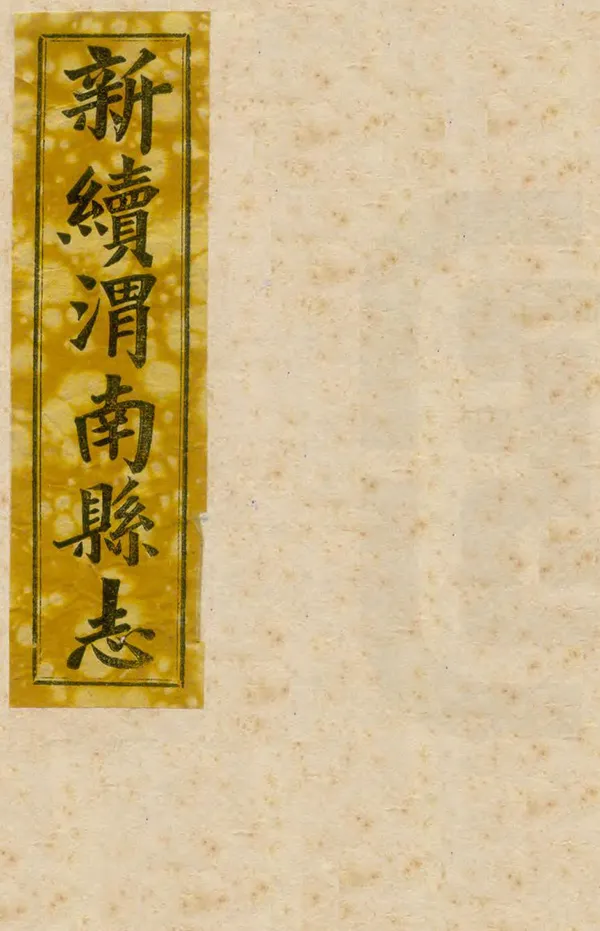 新續渭南縣志